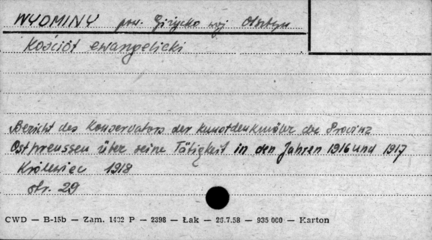 WYDMINY pow. Giżycko woj. Olsztyn
Kościół ewangelicki
Bericht des Konservators der Kunstdenkmäler der Provinz
Ostpreussen über seine Tätigkeit in den Jahren 1916 und 1917
Królewiec 1918
str. 29
CWD — B-15b — Zam. 1432 P — 2398 — Łak — 26.7.58 — 935 000 — Karton